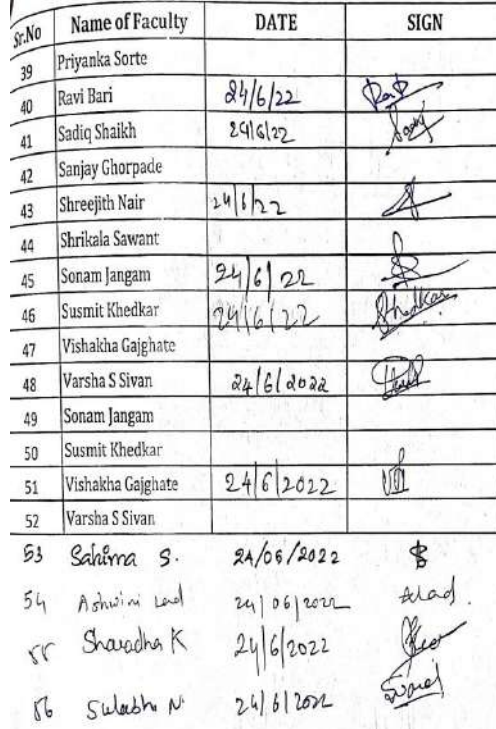 Sr.No Name of Faculty DATE SIGN
39 Priyanka Sorte
40 Ravi Bari 24/6/22
41 Sadiq Shaikh 24/6/22
42 Sanjay Ghorpade
43 Shreejith Nair 24/6/22
44 Shrikala Sawant
45 Sonam Jangam 24/6/22
46 Susmit Khedkar 24/6/22 Khedkar
47 Vishakha Gajghate
48 Varsha S Sivan 24/6/2022
49 Sonam Jangam
50 Susmit Khedkar
51 Vishakha Gajghate 24/6/2022
52 Varsha S Sivan
53 Sahima S. 24/06/2022
54 Ashwini Lad 24/06/2022 ALad
55 Sharadha K 24/6/2022
56 Sulabha N. 24/6/2022